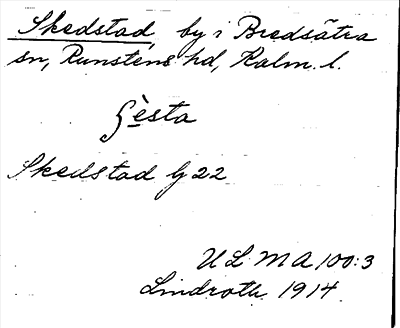 Skedstad, by i Bredsätra
sn, Runstens hd, Kalm. l.
Gèsta
Skedstad G 22
ULMA 100:3
Lindroth 1914